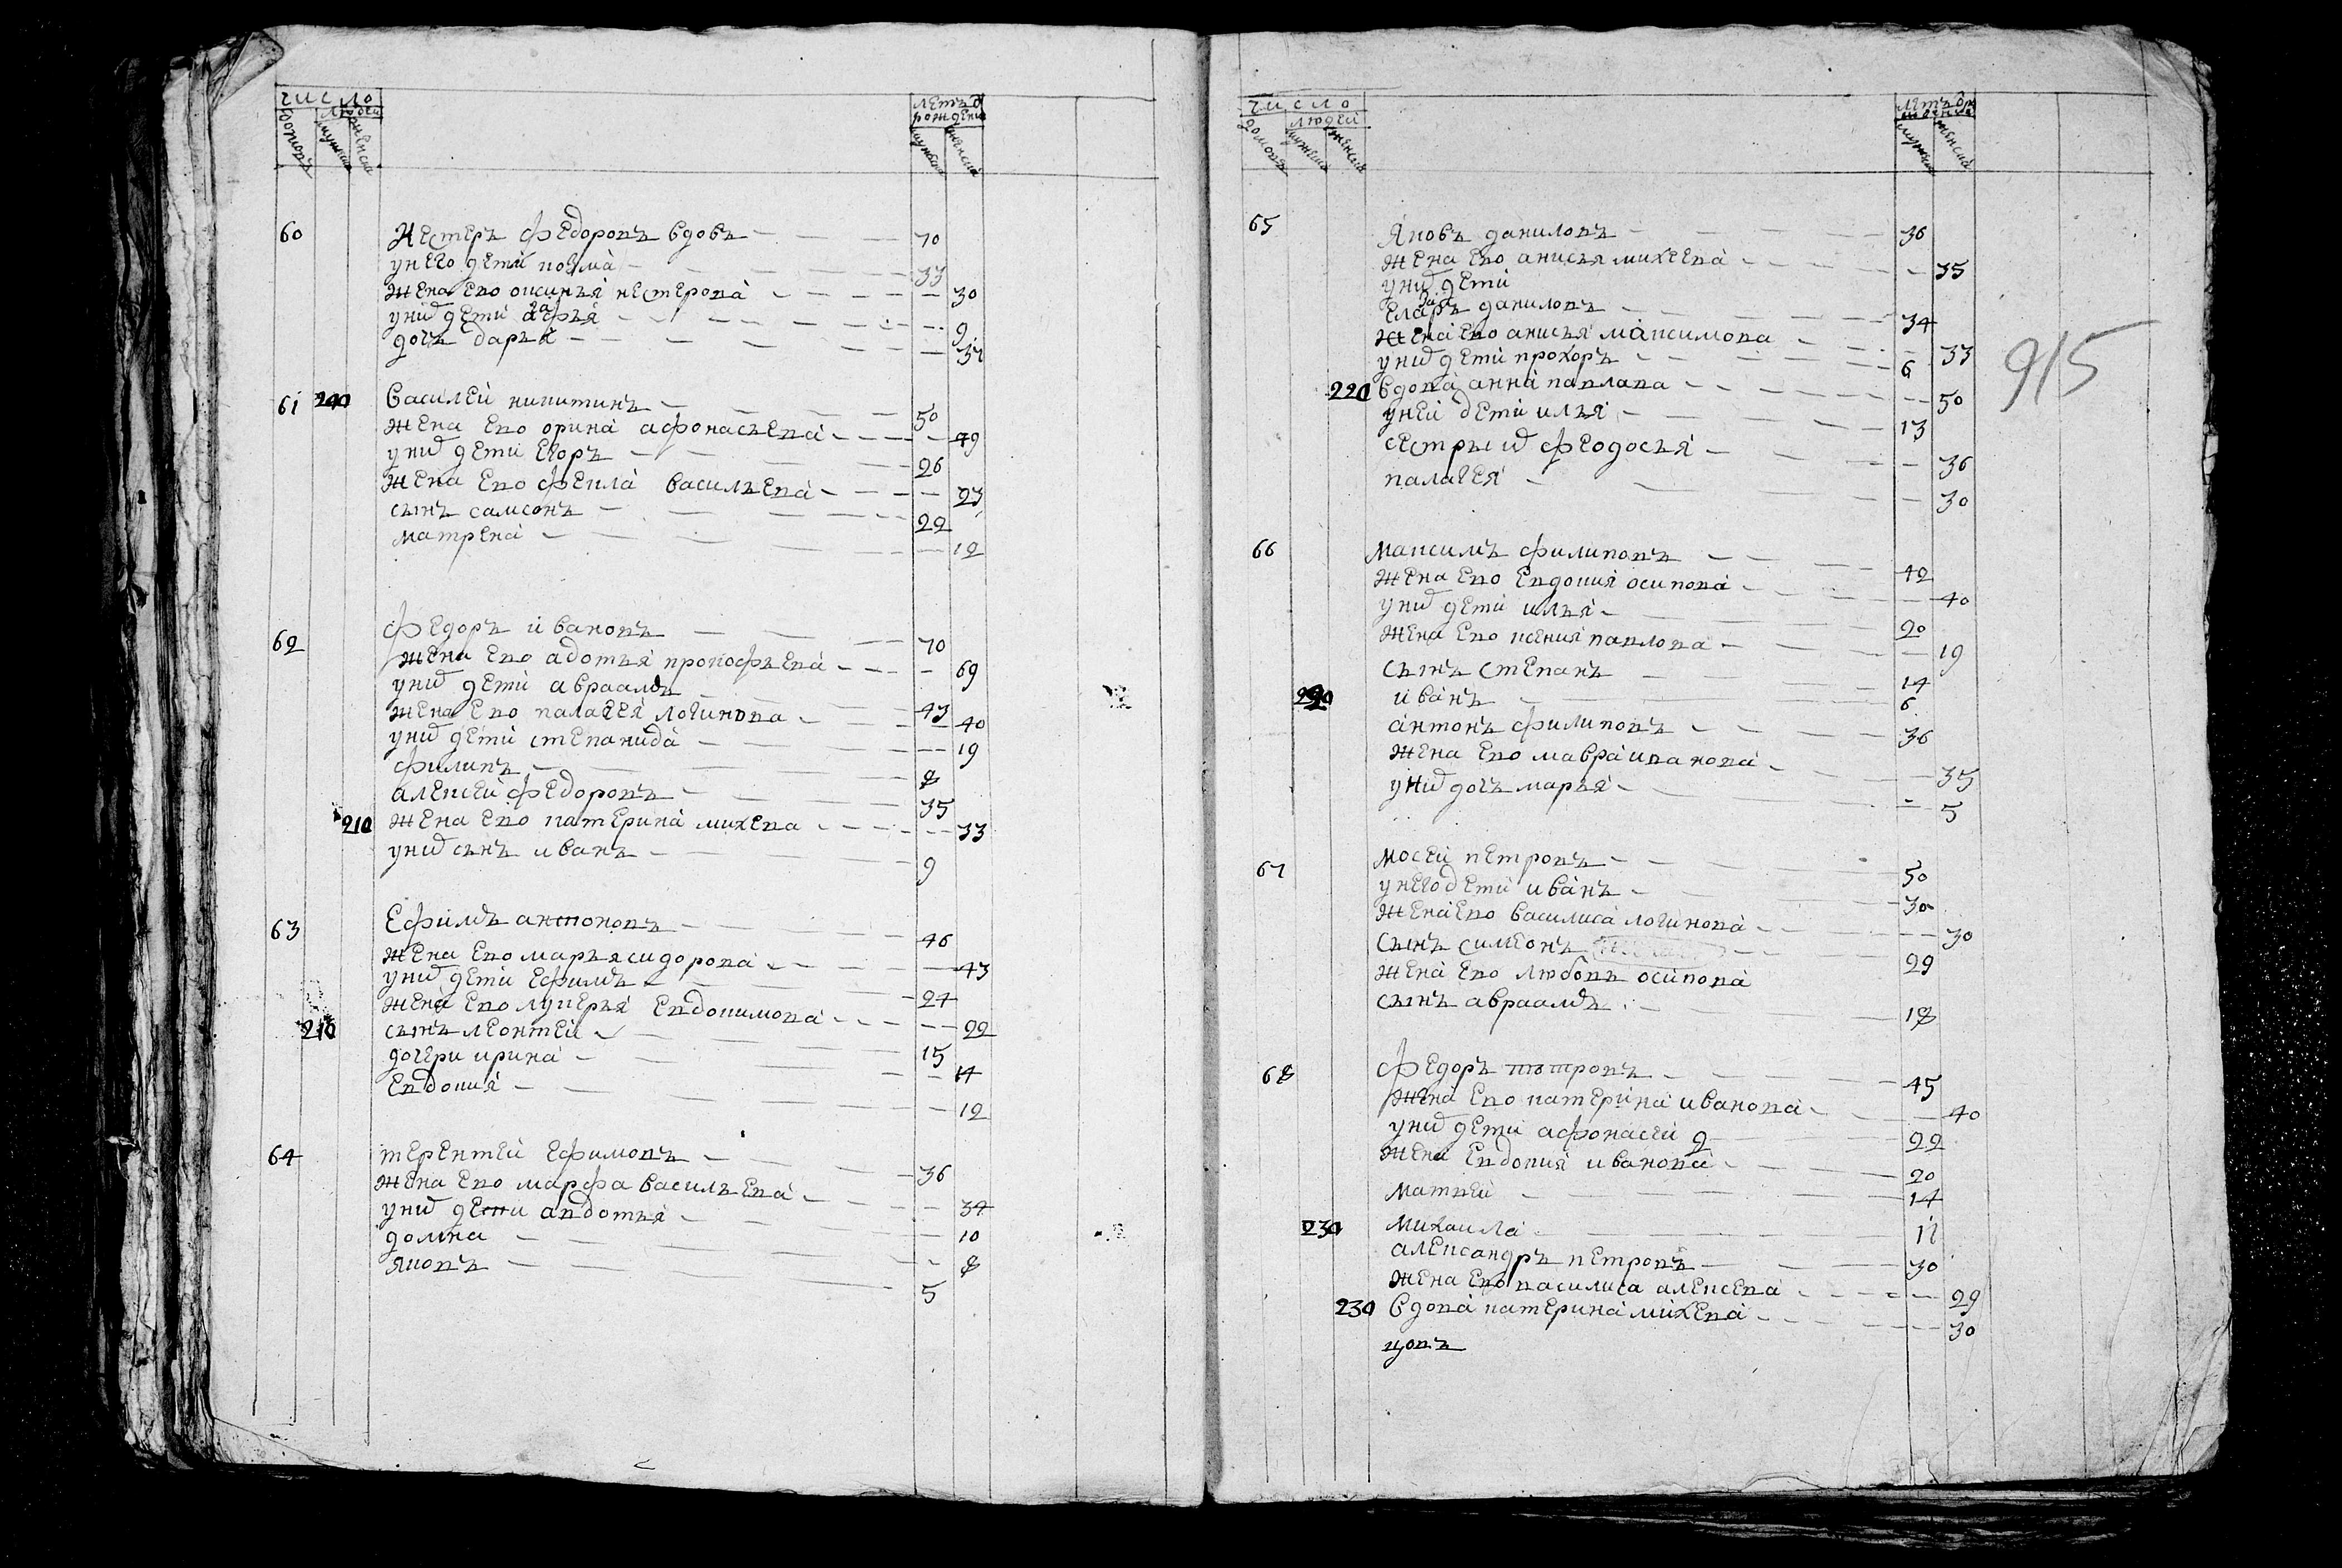 число
людей
домовъ
мужска
женска
летъ
рождения
мужска
женска
60 Нестеръ федоровъ вдовъ 70
у него дети козма 33
жена ево оксинья нестерова 30
у них дети 9
дочь дарья
61 200 василеи никитинъ 50
жена ево орина афонасьева 49
у них дети егоръ 26
жена ево фекла васильева 23
сынъ самсонъ 22
матрена 12
62 федоръ ивановъ 70
жена ево адотья прокофьева 69
у них дети авраамъ 43
жена ево палагея логинова 40
у них дети степанида 19
филипъ 8
алексеи федоровъ 35
210 жена ево катерина михева 33
у них сынъ иванъ 9
63 Ефимъ антоновъ 46
жена ево марья сидорова 43
у них дети ефимъ 24
жена ево лукерья евдокимова 22
210 сынъ леонтеи 15
дочери ирина 14
евдокия 12
64 терентеи ефимовъ 36
жена ево марфа васильева 34
у них дети авдотья 10
домна 8
яковъ 5
число
людей
домовъ
мужска
женска
летъ
мужска
женска
915
65 Яковъ даниловъ 36
жена ево анисья михеева 35
у них дети
даниловъ 34
жена ево анисья максимова 33
у них дети прохоръ 6
220 вдова анна павлава 50
у неи дети илья 13
сестры их феодосья 36
палагея 30
66 максимъ филиповъ 42
жена ево евдокия осипова 40
у них дети илья 20
жена ево ксения павлова 19
сынъ степанъ 14
220 иванъ 6
антонъ филиповъ 36
жена ево мавра иванова 35
у них дочь марья 5
67 мосеи петровъ 50
у него дети иванъ 30
жена ево василиса логинова 30
сынъ симеонъ 29
жена ево любовъ осипова
сынъ авраамъ 18
68 федоръ петровъ 45
жена ево катерина иванова 40
у них дети афонасеи 2 22
жена евдокия иванова 20
матвеи 14
230 михаила 11
александръ петровъ 30
жена ево василиса алексева 29
230 вдова катерина михева 30
цовъ